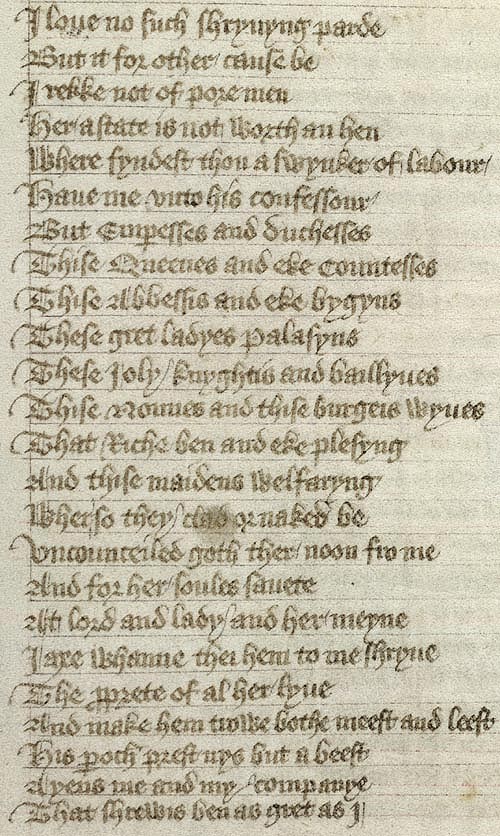 I loue no such shryuyng parde
But it for other cause be
I rekke not of pore men
Her astate is not worth an hen
Where fyndest thou a swynker of labour
Haue me vnto his confessour
But Emperesses and duchesses
Thise Queenes and eke Countesses
Thise Abbessis and eke bygyns
These gret ladyes palasyns
These Joly knyghtis and baillyues
Thise nonnes and thise burgeis wyues
That Riche ben and eke plesyng
And thise maidens welfaryng
Wherso they clad or naked be
Vncounceiled goth ther noon fro me
And for her soules sauete
At lord and lady and her meyne
I axe whanne thei hem to me shryue
The proprete of al her lyue
And make hem trowe bothe meest and leest
His paroch prest nys but a beest
Ayens me and my companye
That shrewis ben as gret as I